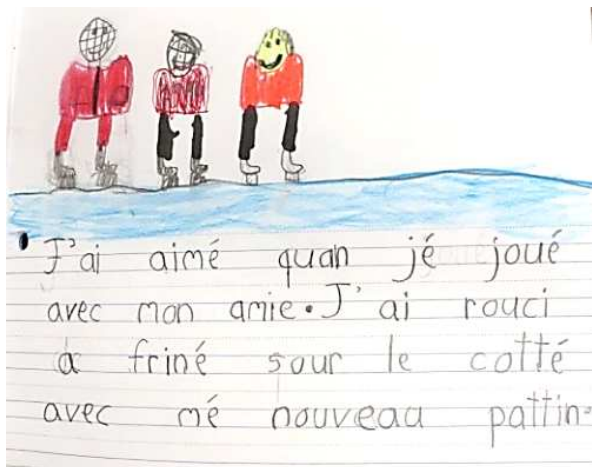 J'ai aimé quan jé joué
avec mon amie. J'ai rouci
à friné sour le cotté
avec mé nouveau pattin.